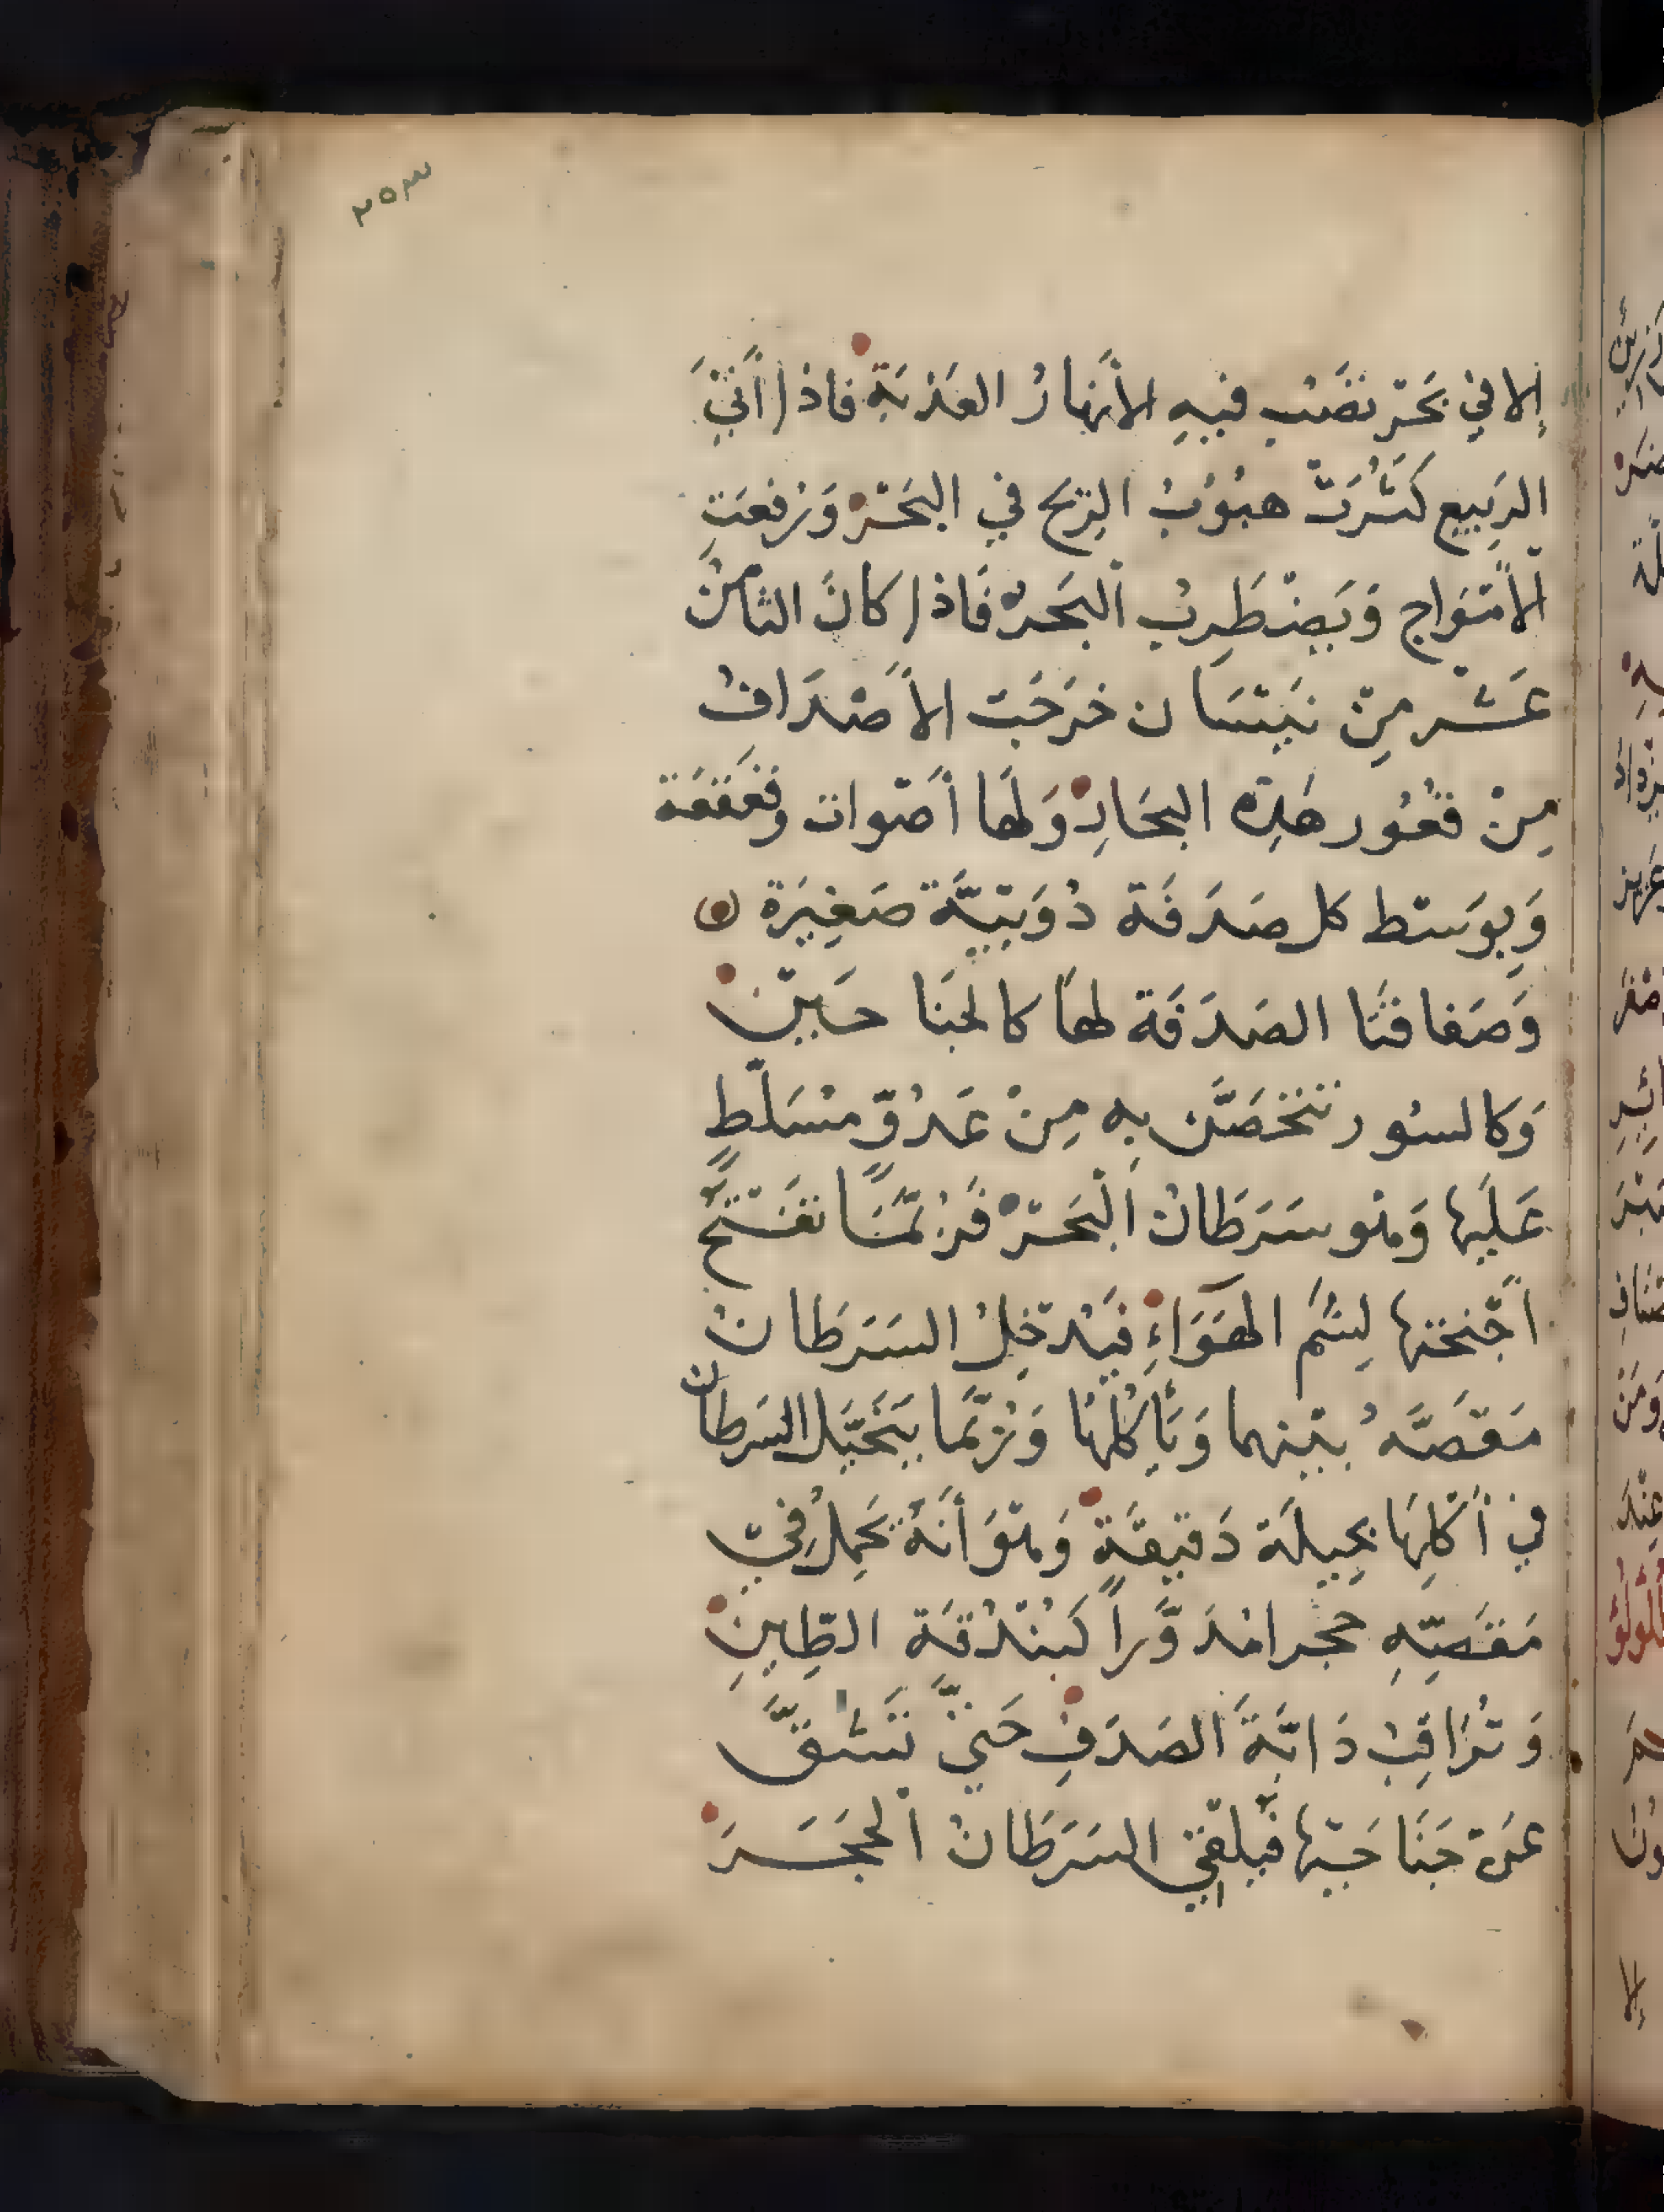 ٢٥٣
إلا في بَحْر تصَب فيهِ الأنهارُ العَذبَةِ فاذا أتى
الرَبيع كَثُرَتْ هبُوُبُ الرّيح في البَحْر وَرُفعَت
الأمْوَاج وَيَضْطَرِبُ البَحر فَاذا كانَ الثامنُ
عَشْر مِنْ نَيْسَان خرَجَت الأَصْدَافُ
مِنْ قعُور هَذِه البحَار وَلهَا أصْوات وقعْقَعَة
وَبوَسْط كل صَدَفَة دُوَيْبيَّة صَغِيرَة
وَصَفا فتَا الصَدَفَة لهَا كالجنَا حَيْن
وَكالسُور تتخصَّن به مِنْ عَدُوّ مُسَلّطٍ
عَليَها وَهْو سَرَطَانُ البَحْر فَرُبَّمَا تفْتَحُ
أجْنحَتها لِشَم الهَوَاءِ فيُدْخِلُ السَرَطَانُ
مَقصَّهُ بيْنهما وَيَأكُلهَا وَرُبَّمَا يتَحَيَّل السَرطان
في أكْلِهَا بحِيلَة دَقيقَةٍ وَهْوَ أنَهُ يَحمِلُ في
مَقصّهِ حجرا مُدَوَّراً كَبُنْدُقَة الطّينِ
وَتُرَاقِبُ دَابَّةَ الصَدَفِ حَتىَّ تَشقَّ
عَنْ جَنَا حَيْها فَيُلقي السَرَطَانُ الحَجَرَ